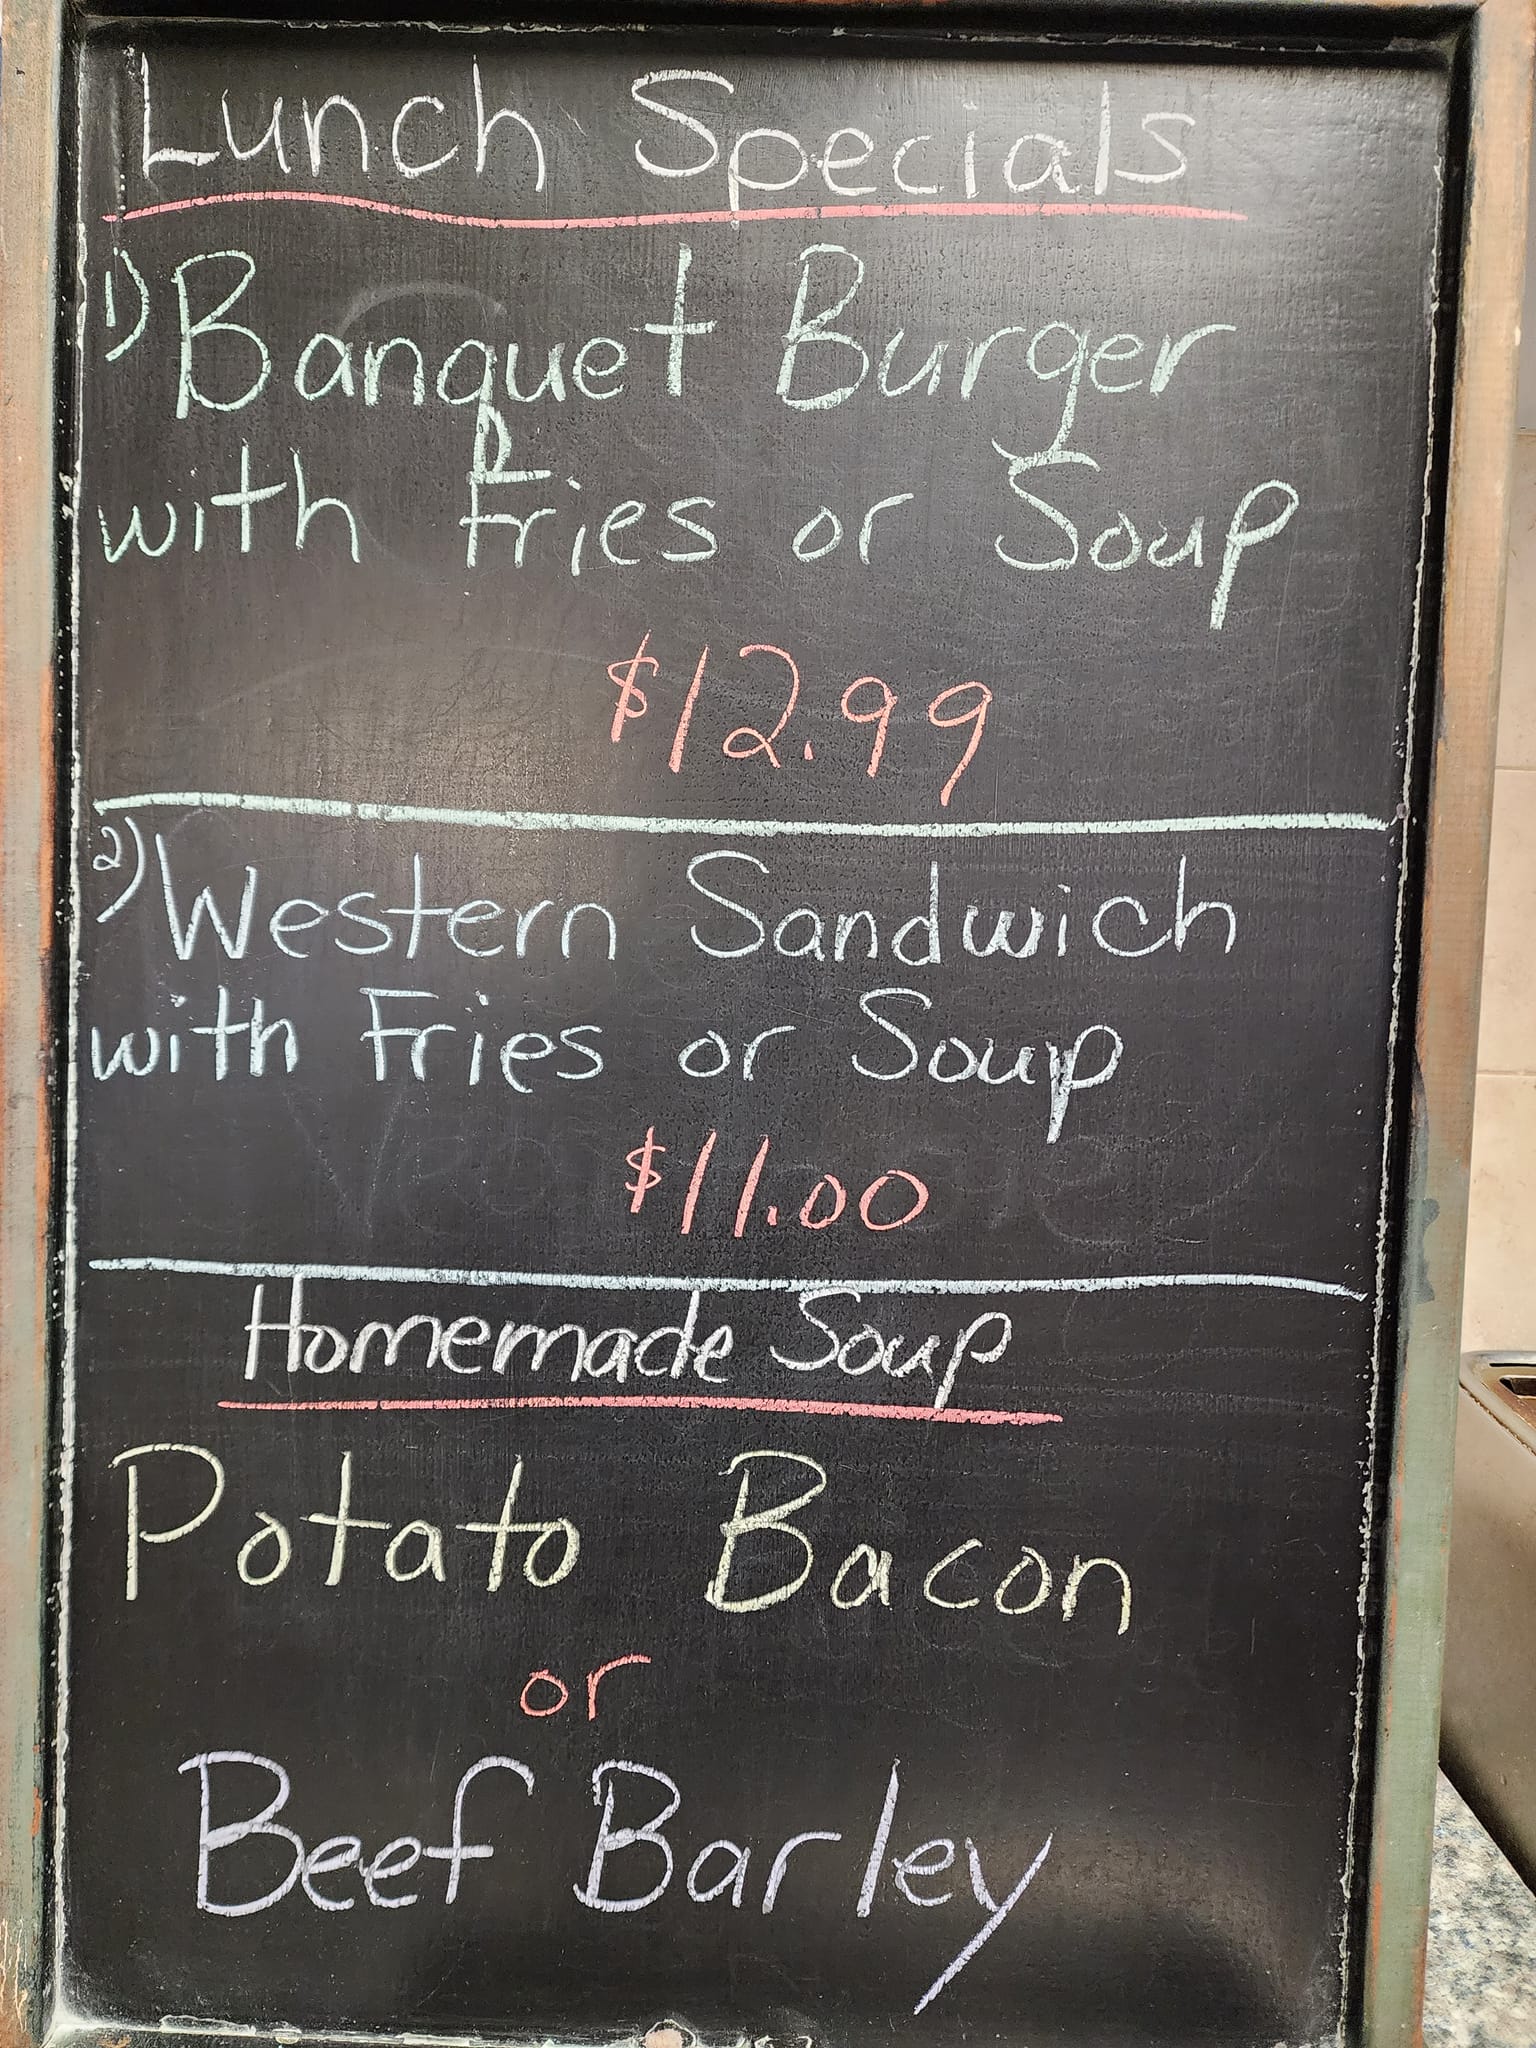 Lunch Specials
1) Banquet Burger
with Fries or Soup
$12.99
2) Western Sandwich
with Fries or Soup
$11.00
Homemade Soup
Potato Bacon
or
Beef Barley